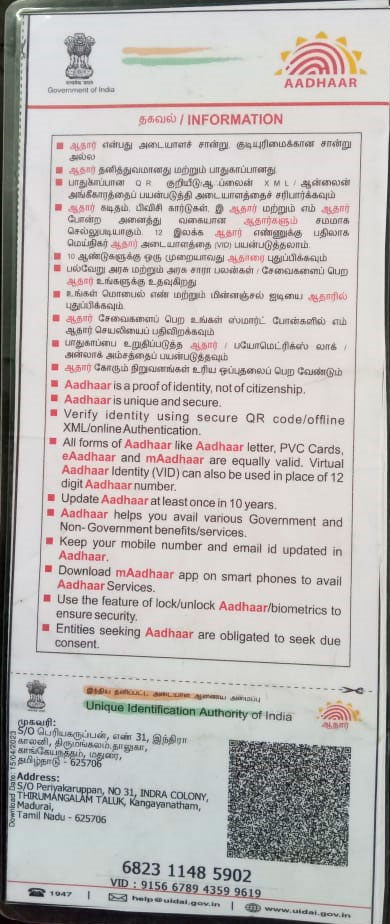 Government of India
AADHAAR
தகவல் / INFORMATION
ஆதார் என்பது அடையாளச் சான்று, குடியுரிமைக்கான சான்று
அல்ல
ஆதார் தனித்துவமானது மற்றும் பாதுகாப்பானது.
பாதுகாப்பான QR குறியீடு/ஆஃப்லைன் XML/ஆன்லைன்
அங்கீகாரத்தைப் பயன்படுத்தி அடையாளத்தைச் சரிபார்க்கவும்
ஆதார் கடிதம், பிவிசி கார்டுகள், இ ஆதார் மற்றும் எம் ஆதார்
போன்ற அனைத்து வகையான ஆதார்களும் சமமாக
செல்லுபடியாகும். 12 இலக்க ஆதார் எண்ணுக்கு பதிலாக
மெய்நிகர் ஆதார் அடையாளத்தை (VID) பயன்படுத்தலாம்.
10 ஆண்டுகளுக்கு ஒரு முறையாவது ஆதாரை புதுப்பிக்கவும்
பல்வேறு அரசு மற்றும் அரசு சாரா பலன்கள் / சேவைகளைப் பெற
ஆதார் உங்களுக்கு உதவுகிறது
உங்கள் மொபைல் எண் மற்றும் மின்னஞ்சல் ஐடியை ஆதாரில்
புதுப்பிக்கவும்.
ஆதார் சேவைகளைப் பெற உங்கள் ஸ்மார்ட் போன்களில் எம்
ஆதார் செயலியைப் பதிவிறக்கவும்
பாதுகாப்பை உறுதிப்படுத்த ஆதார் / பயோமெட்ரிக்ஸ் லாக் /
அன்லாக் அம்சத்தைப் பயன்படுத்தவும்
ஆதார் கோரும் நிறுவனங்கள் உரிய ஒப்புதலைப் பெற வேண்டும்
Aadhaar is a proof of identity, not of citizenship.
Aadhaar is unique and secure.
Verify identity using secure QR code/offline
XML/online Authentication.
All forms of Aadhaar like Aadhaar letter, PVC Cards,
eAadhaar and mAadhaar are equally valid. Virtual
Aadhaar Identity (VID) can also be used in place of 12
digit Aadhaar number.
Update Aadhaar at least once in 10 years.
Aadhaar helps you avail various Government and
Non- Government benefits/services.
Keep your mobile number and email id updated in
Aadhaar.
Download mAadhaar app on smart phones to avail
Aadhaar Services.
Use the feature of lock/unlock Aadhaar/biometrics to
ensure security.
Entities seeking Aadhaar are obligated to seek due
consent.
இந்திய தனிப்பட்ட அடையாள ஆணைய அமைப்பு
Unique Identification Authority of India
ஆதார்
Download Date: 15/04/2023
முகவரி:
S/O பெரியகருப்பன், எண் 31, இந்திரா
காலனி, திருமங்கலம் தாலுகா,
காங்கேயநத்தம், மதுரை,
தமிழ்நாடு - 625706
Address:
S/O Periyakaruppan, NO 31, INDRA COLONY,
THIRUMANGALAM TALUK, Kangayanatham,
Madurai,
Tamil Nadu - 625706
6823 1148 5902
VID : 9156 6789 4359 9619
1947
help@uidai.gov.in
www.uidai.gov.in